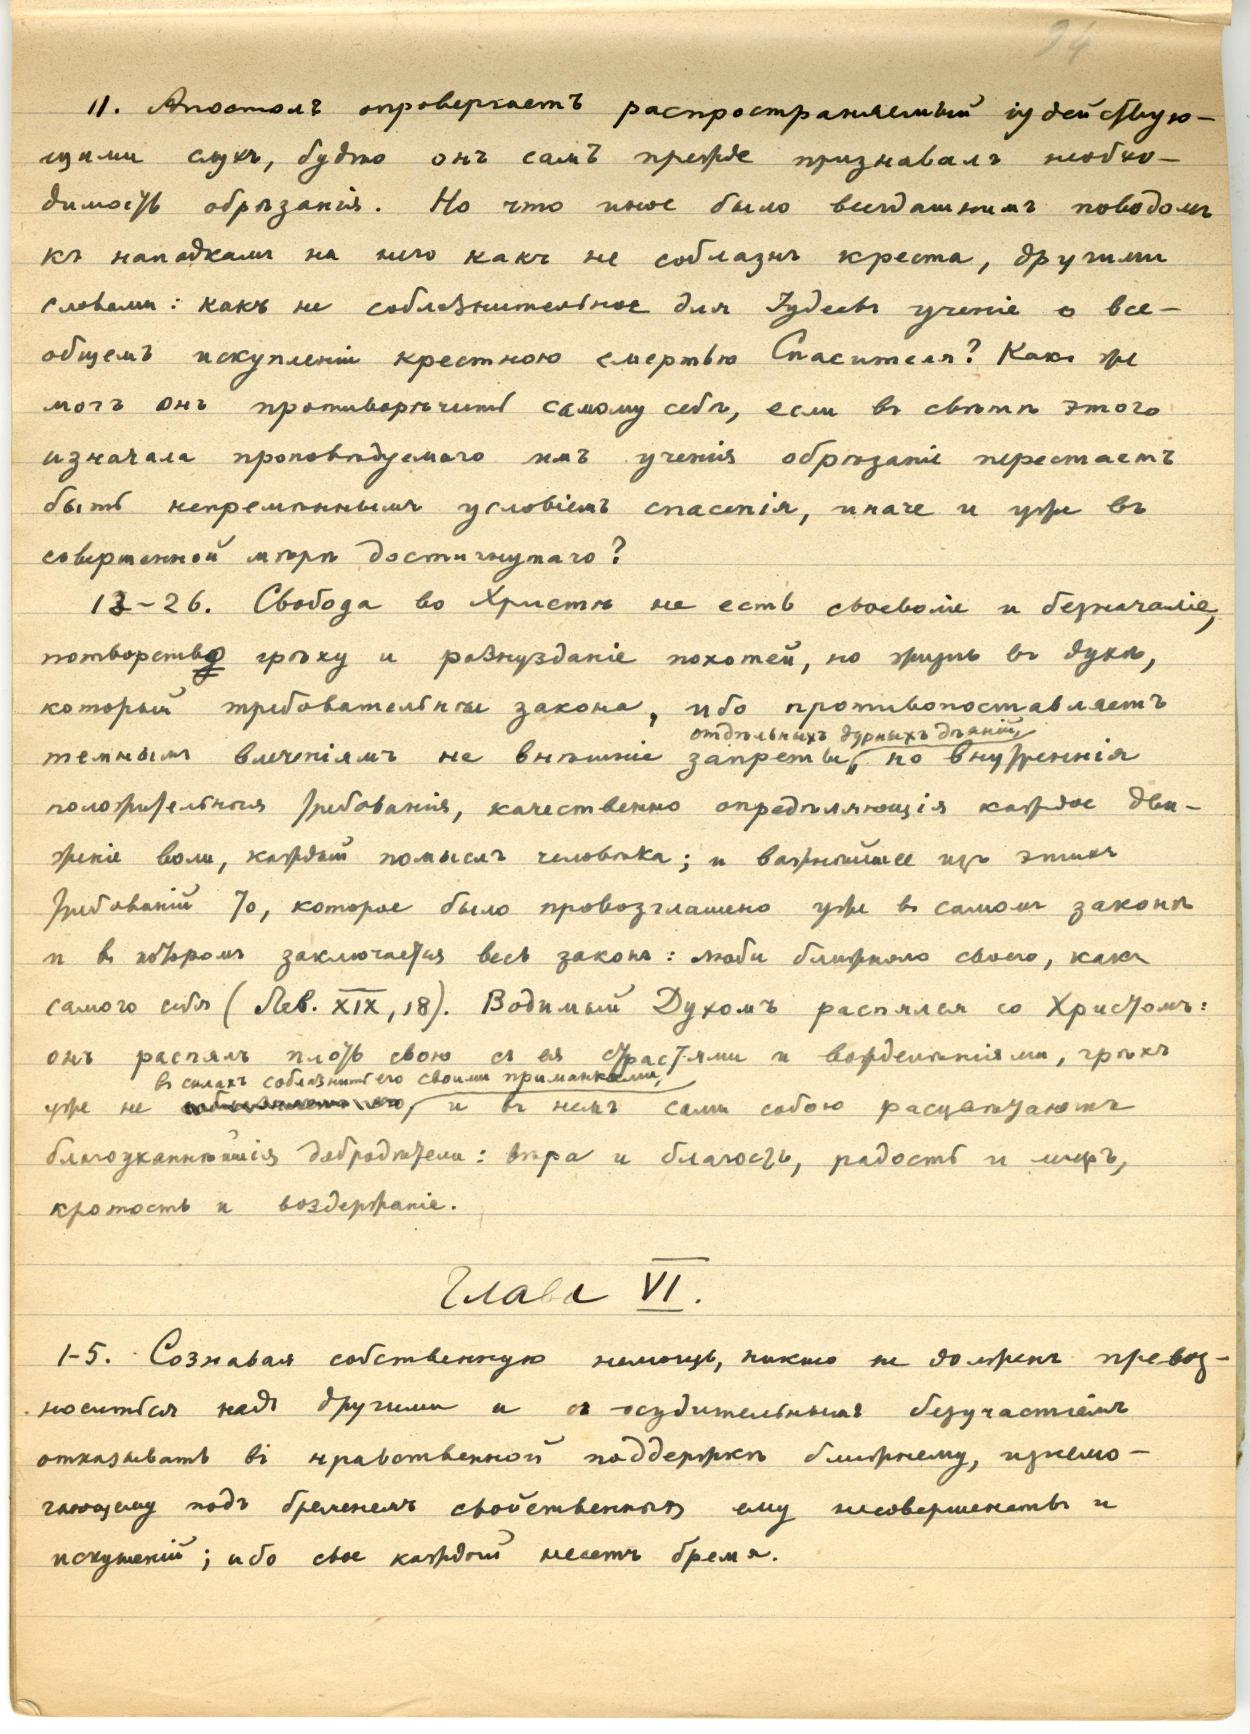 94
11. Апостолъ опровергаетъ распространяемый іудействую-
щими слухъ, будто онъ самъ прежде признавалъ необхо-
димость обрѣзанія. Но что иное было всегдашнимъ поводомъ
къ нападкамъ на него какъ не соблазнъ креста, другими
словами: какъ не соблазнительное для Іудеевъ ученіе о все-
общемъ искупленіи крестною смертью Спасителя? Какъ же
могъ онъ противорѣчить самому себѣ, если въ свѣтѣ этого
изначала проповѣдуемаго имъ ученія обрѣзаніе перестаетъ
быть непремѣннымъ условіемъ спасенія, иначе и уже въ
совершенной мѣрѣ достигнутаго?
13-26. Свобода во Христѣ не есть своеволіе и безначаліе,
потворство грѣху и разнузданіе похотей, но жизнь въ духѣ,
который требовательнѣе закона, ибо противопоставляетъ
отдѣльныхъ дурныхъ дѣяній,
темнымъ влеченіямъ не внѣшніе запреты, но внутреннія
положительныя требованія, качественно опредѣляющія каждое дви-
женіе воли, каждый помыслъ человѣка; и важнѣйшее изъ этихъ
требованій то, которое было провозглашено уже въ самомъ законѣ
и въ которомъ заключается весь законъ: люби ближняго своего, какъ
самого себя (Лев. XIX, 18). Водимый Духомъ распялся со Христомъ:
онъ распялъ плоть свою съ ея страстями и вожделѣніями, грѣхъ
въ силахъ соблазнить его своими приманками,
уже не и въ немъ сами собою расцвѣтаютъ
благоуханнѣйшія добродѣтели: вѣра и благость, радость и миръ,
кротость и воздержаніе.
Глава VI.
1-5. Сознавая собственную немощь, никто не долженъ превоз-
носиться надъ другими и съ осудительнымъ безучастіемъ
отказывать въ нравственной поддержкѣ ближнему, изнемо-
гающему подъ бременемъ свойственныхъ ему несовершенствъ и
искушеній; ибо свое каждый несетъ бремя.